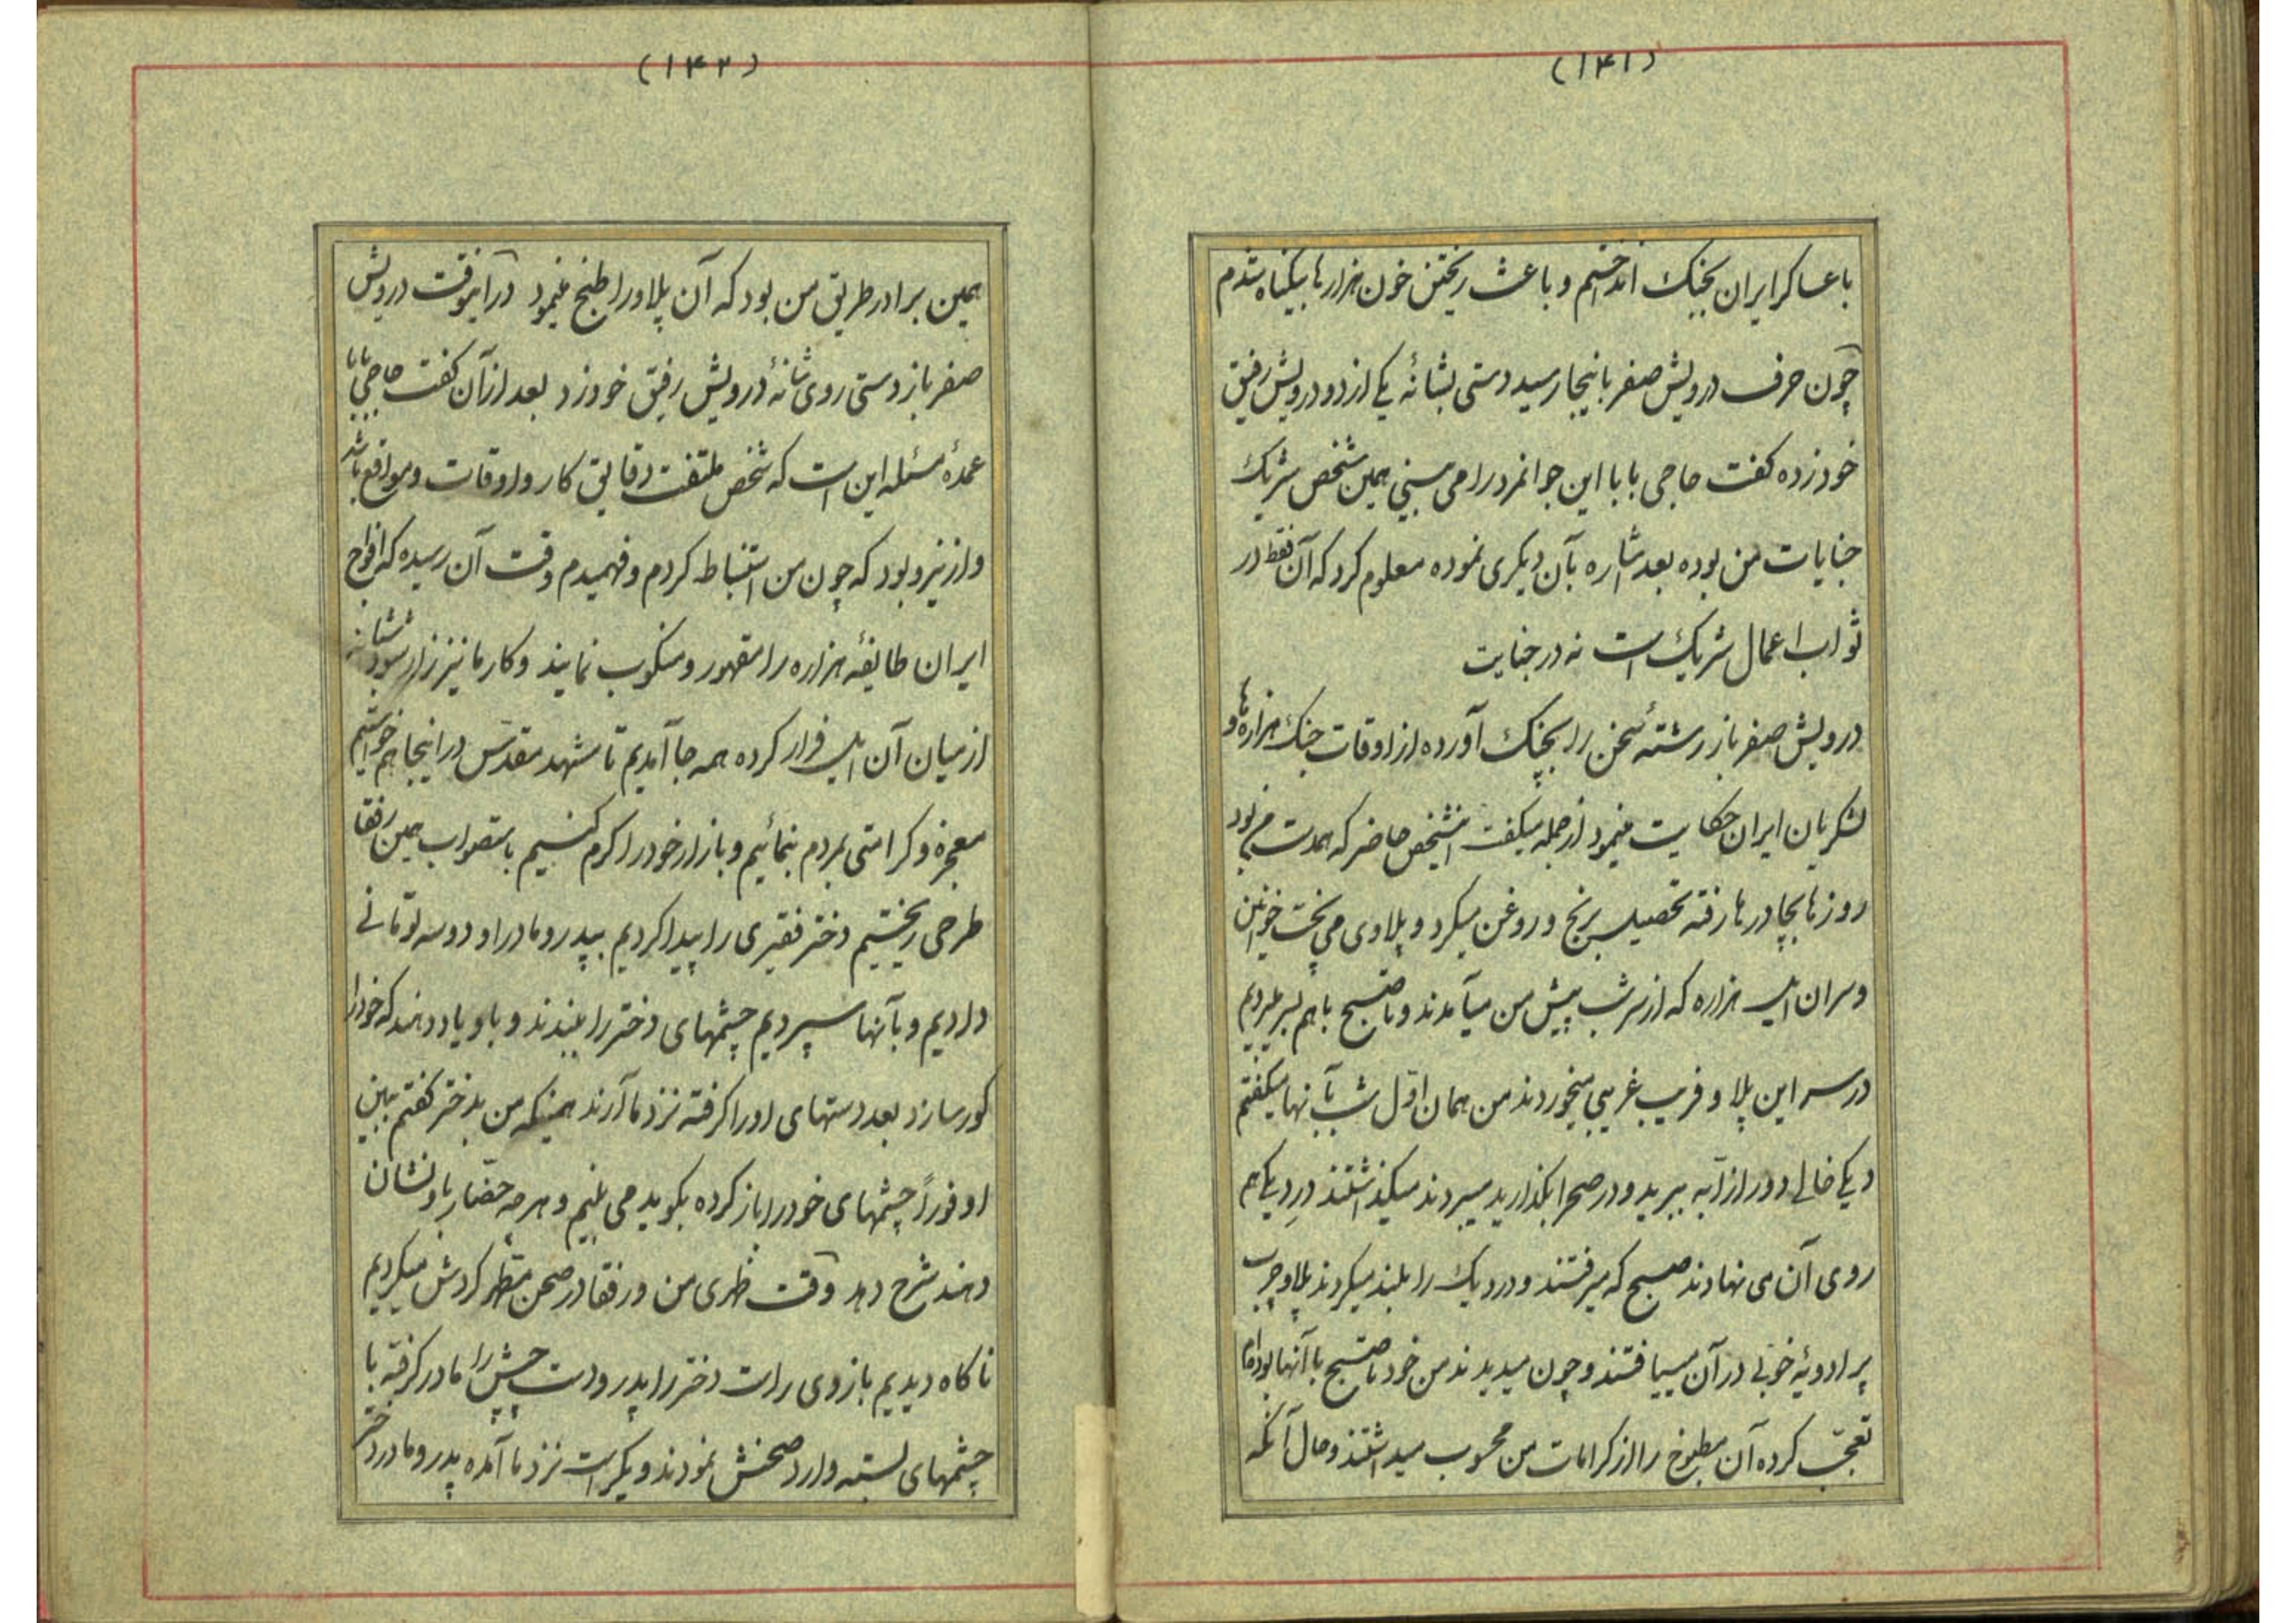 (۱۴۱)
باعساکر ایران بجنک انداختم و باعث ریختن خون هزارها بیکناه شدم
چون حرف درویش صفر باینجا رسید دستی بشانهٔ یکی از دو درویش رفیق
خود زده کفت حاجی بابا این جوانمرد را می بینی همین شخص شریک
جنایات من بوده بعد اشاره بآن دیکری نموده معلوم کرد که آن فقط در
ثواب اعمال شریک است نه در جنایت
درویش صفر باز رشتهٔ سخن را بچنک آورده از اوقات جنک هزاره‌ها و
لشکریان ایران حکایت مینمود از جمله میکفت این شخص حاضر که همدست من بود
روزها بچادرها رفته تحصیل برنج و روغن میکرد و پلاوی می پخت خوانین
و سران ایل هزاره که از سر شب پیش من میآمدند و تا صبح باهم بسر میبردیم
در سر این پلاو فریب غریبی میخوردند من همان اول شب بآنها میکفتم
دیکی خالی دور از آبه ببرید و در صحرا بکذارید میبردند میکذاشتند درِ دیک هم
روی آن می نهادند صبح که میرفتند و در دیک را بلند میکردند پلاو چرب
پر ادویهٔ خوبی در آن مییافتند و چون میدیدند من خود تا صبح با آنها بوده‌ام
تعجّب کرده آن مطبوخ را از کرامات من محسوب میداشتند و حال آنکه
(۱۴۲)
همین برادر طریق من بود که آن پلاو را طبخ مینمود در آنوقت درویش
صفر باز دستی روی شانهٔ درویش رفیق خود زد بعد از آن کفت حاجی بابا
عمدهٔ مسئله این است که شخص ملتفت دقایق کار و اوقات و مواقع باشد
و از نیرو بود که چون من استنباط کردم و فهمیدم وقت آن رسیده که افواج
ایران طایفهٔ هزاره را مقهور و منکوب نمایند و کار ما نیز زار شود شبانه
از میان آن ایل فرار کرده همه جا آمدیم تا مشهد مقدّس در اینجا هم خواستیم
معجزه و کرامتی بمردم بنمائیم و بازار خود را کرم کنیم باستصواب همین رفقا
طرحی ریختیم دختر فقیری را پیدا کردیم بپدر و مادر او دو سه تومانی
دادیم و بآنها سپردیم چشمهای دختر را ببندند و باو یاد دهند که خود را
کور سازد بعد دستهای او را کرفته نزد ما آرند همینکه من بدختر کفتم ببین
او فوراً چشمهای خود را باز کرده بکوید می بینم و هر چه حضّار باو نشان
دهند شرح دهد وقت ظهری من و رفقا در صحن مطهر کردش میکردیم
ناکاه دیدیم بازوی راست دختر را پدر و دست چپش را مادر کرفته با
چشمهای بسته وارد صحنش نمودند و یکراست نزد ما آمده پدر و مادر دختر